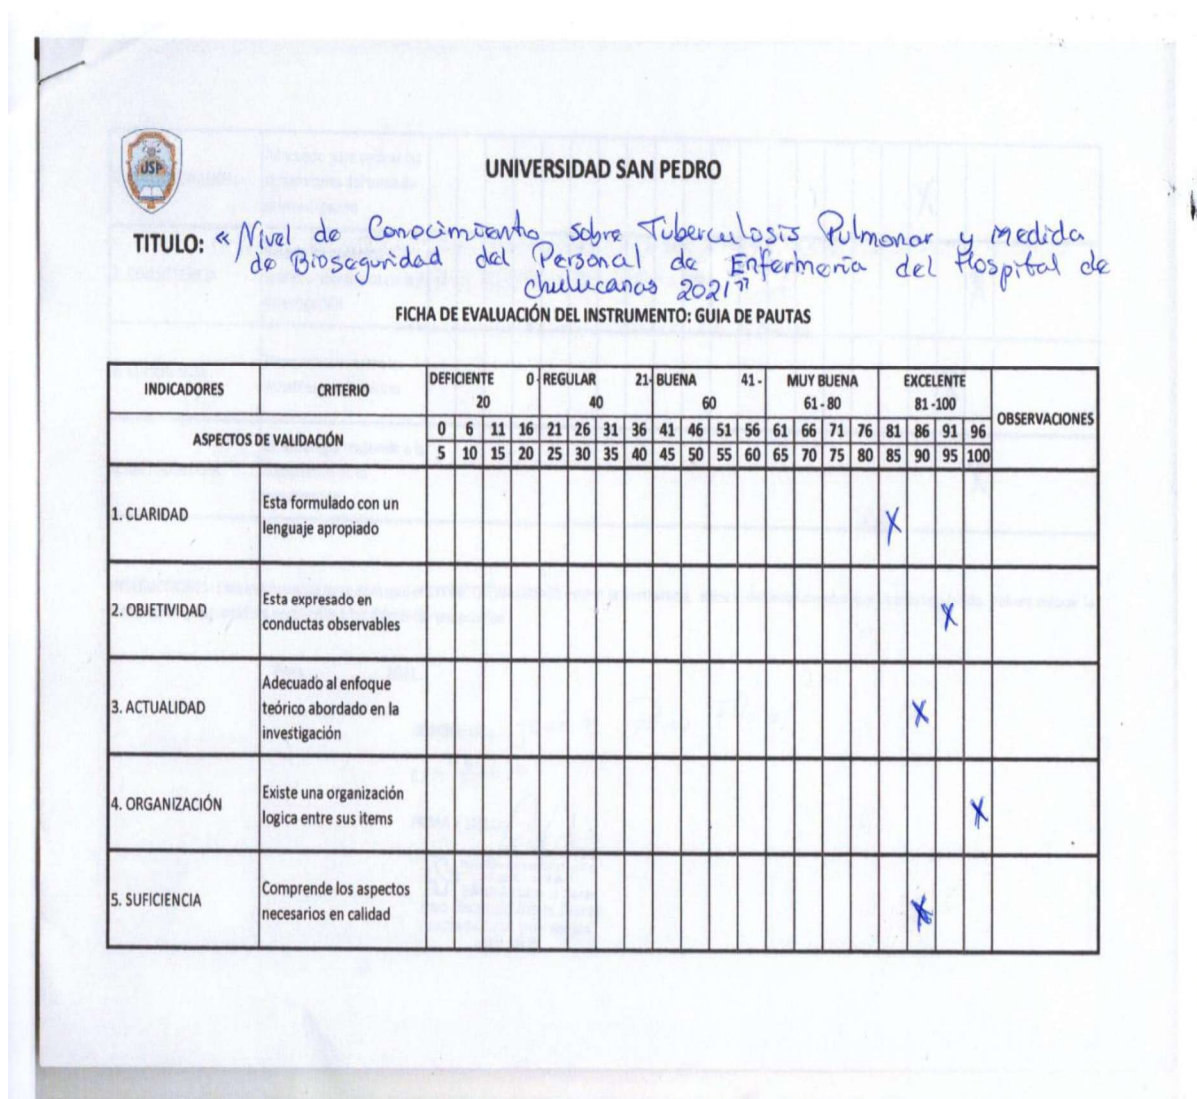 USP
UNIVERSIDAD SAN PEDRO
TITULO: "Nivel de Conocimiento sobre Tuberculosis Pulmonar y medida
de Bioseguridad del Personal de Enfermería del Hospital de
Chulucanas 2021"
FICHA DE EVALUACIÓN DEL INSTRUMENTO: GUIA DE PAUTAS
INDICADORES CRITERIO DEFICIENTE 0- REGULAR 21- BUENA 41- MUY BUENA EXCELENTE OBSERVACIONES
20 40 60 61-80 81-100
ASPECTOS DE VALIDACIÓN 0 6 11 16 21 26 31 36 41 46 51 56 61 66 71 76 81 86 91 96
5 10 15 20 25 30 35 40 45 50 55 60 65 70 75 80 85 90 95 100
1. CLARIDAD Esta formulado con un
lenguaje apropiado X
2. OBJETIVIDAD Esta expresado en
conductas observables X
3. ACTUALIDAD Adecuado al enfoque
teórico abordado en la X
investigación
4. ORGANIZACIÓN Existe una organización
logica entre sus items X
5. SUFICIENCIA Comprende los aspectos
necesarios en calidad X